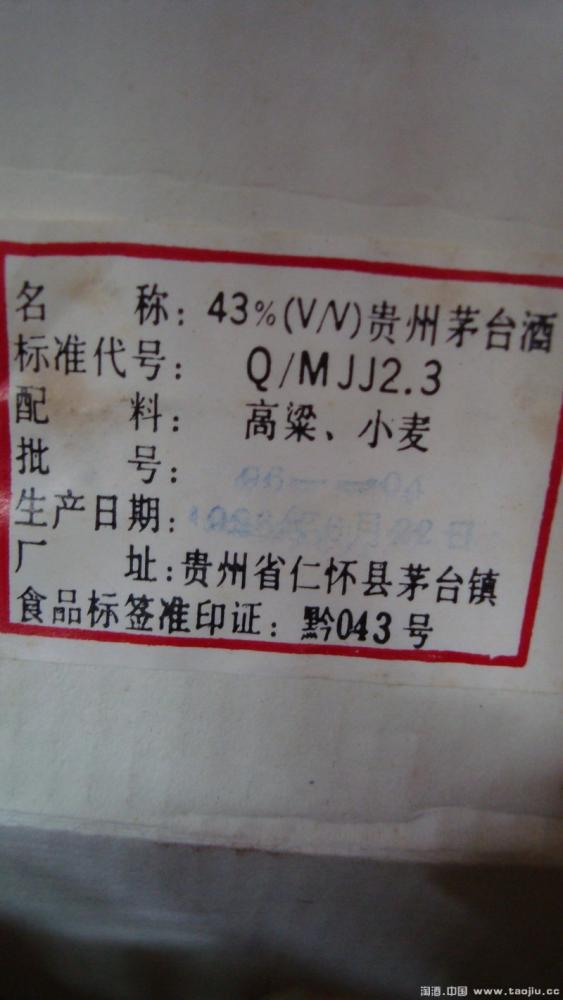 名 称: 43%(V/V)贵州茅台酒
标准代号: Q/MJJ2.3
配 料: 高粱、小麦
批 号:
生产日期: 月22日
厂 址: 贵州省仁怀县茅台镇
食品标签准印证: 黔043号
淘酒.中国 www.taojiu.cc